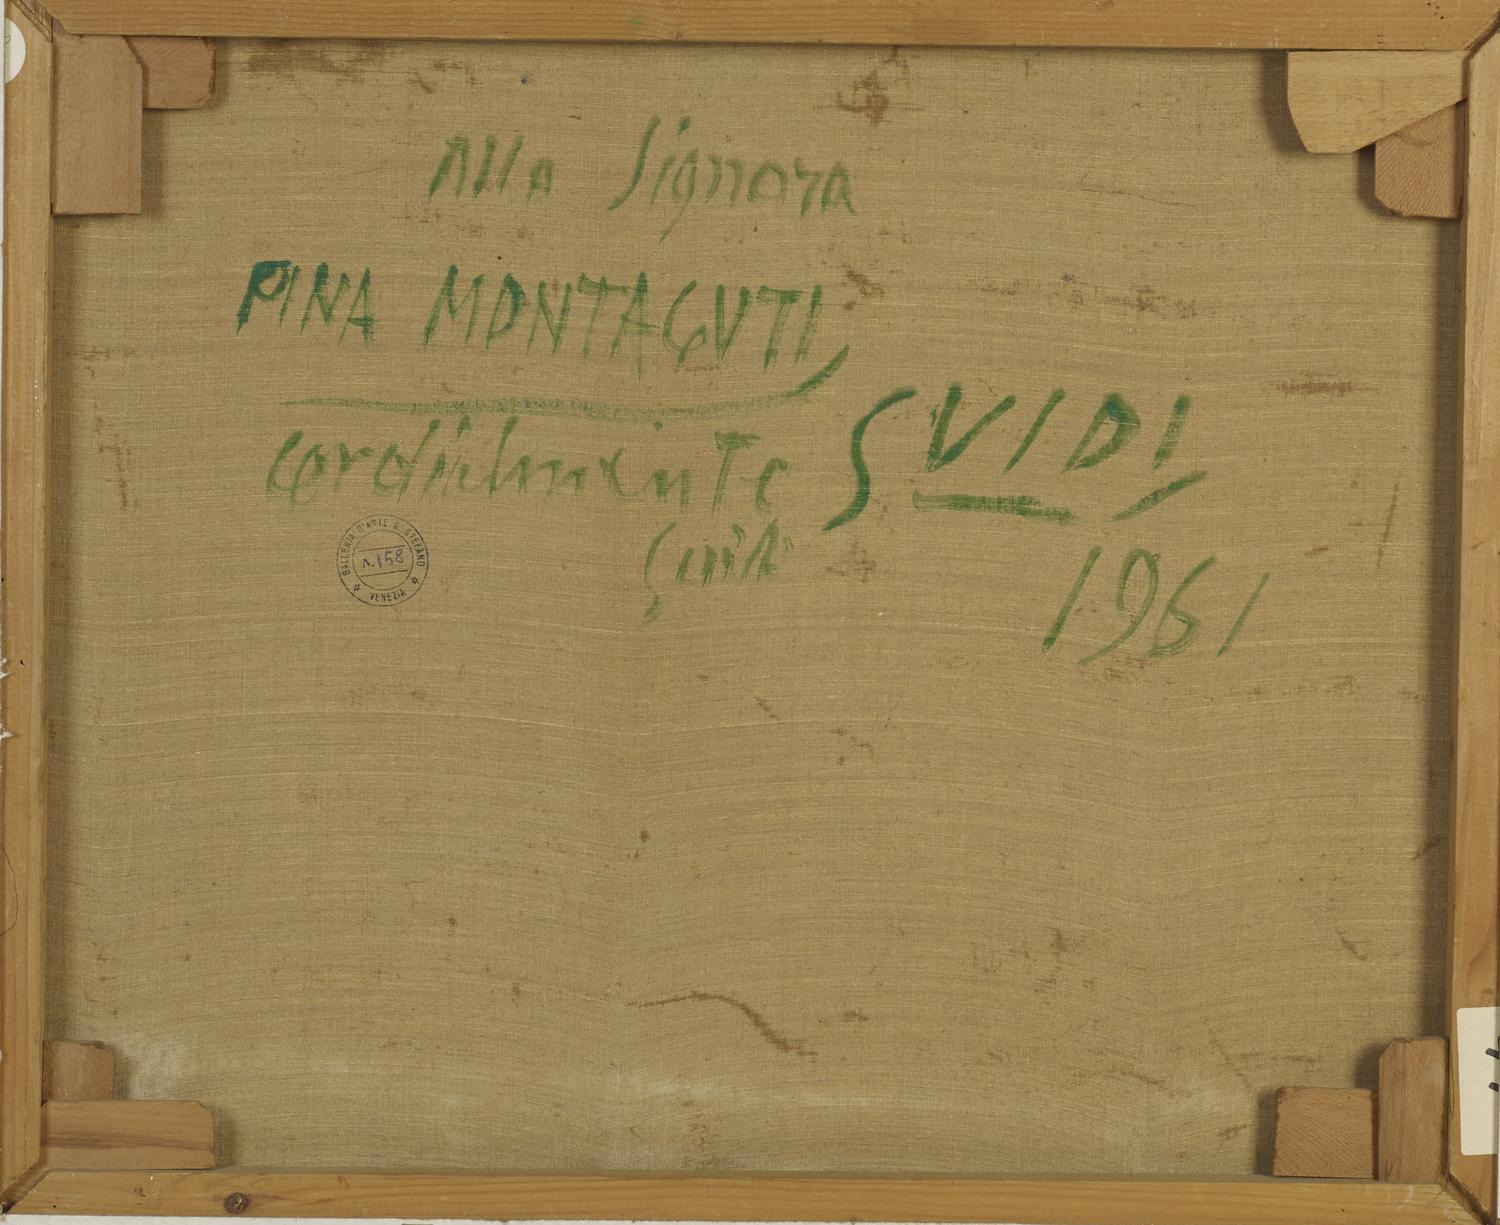 Alla Signora
PINA MONTAGUTI
cordialmente
Guidi
GUIDI
1961
GALLERIA D'ARTE S. STEFANO
N. 158
VENEZIA